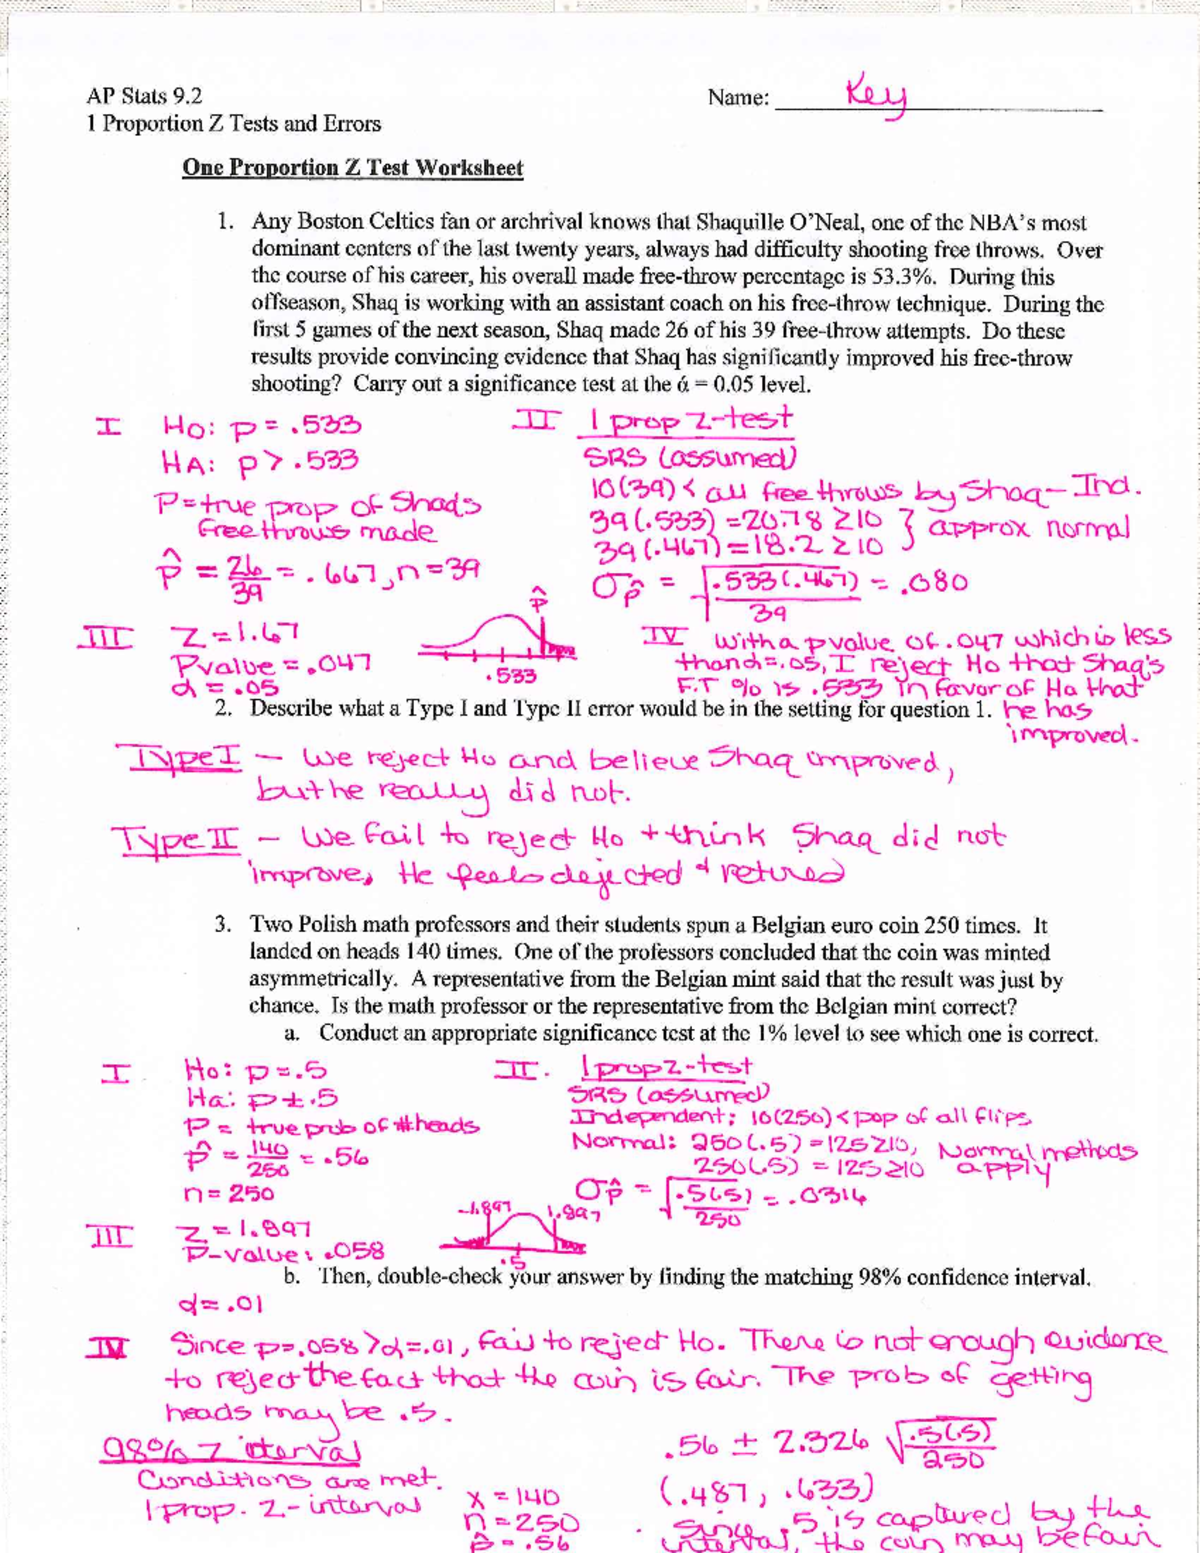 AP Stats 9.2
Name: Key
1 Proportion Z Tests and Errors
One Proportion Z Test Worksheet
1. Any Boston Celtics fan or archrival knows that Shaquille O'Neal, one of the NBA's most
dominant centers of the last twenty years, always had difficulty shooting free throws. Over
the course of his career, his overall made free-throw percentage is 53.3%. During this
offseason, Shaq is working with an assistant coach on his free-throw technique. During the
first 5 games of the next season, Shaq made 26 of his 39 free-throw attempts. Do these
results provide convincing evidence that Shaq has significantly improved his free-throw
shooting? Carry out a significance test at the ά = 0.05 level.
I Ho: p = .533
HA: p > .533
P = true prop of Shads
free throws made
p̂ = 26/39 = .667, n = 39
II 1 prop z-test
SRS (assumed)
10(39) < all free throws by Shaq - Ind.
39(.533) = 20.78 ≥ 10 } approx normal
39(.467) = 18.2 ≥ 10
σp̂ = √.533(.467)/39 = .080
III Z = 1.67
Pvalue = .047
α = .05
p̂
.533
IV with a pvalue of .047 which is less
than α = .05, I reject Ho that Shaq's
F.T % is .533 in favor of Ha that
he has
improved.
2. Describe what a Type I and Type II error would be in the setting for question 1.
Type I – We reject Ho and believe Shaq improved,
but he really did not.
Type II – We fail to reject Ho + think Shaq did not
improve, He feels dejected + retired
3. Two Polish math professors and their students spun a Belgian euro coin 250 times. It
landed on heads 140 times. One of the professors concluded that the coin was minted
asymmetrically. A representative from the Belgian mint said that the result was just by
chance. Is the math professor or the representative from the Belgian mint correct?
a. Conduct an appropriate significance test at the 1% level to see which one is correct.
I Ho: p = .5
Ha: p ≠ .5
P = true prob of # heads
p̂ = 140/250 = .56
n = 250
II. 1 prop z-test
SRS (assumed)
Independent; 10(250) < pop of all flips
Normal: 250(.5) = 125 ≥ 10, Normal methods
250(.5) = 125 ≥ 10 apply
σp̂ = √.5(.5)/250 = .0316
III Z = 1.897
P-value: .058
-1.897 1.897
.5
b. Then, double-check your answer by finding the matching 98% confidence interval.
α = .01
IV Since p = .058 > α = .01, fail to reject Ho. There is not enough evidence
to reject the fact that the coin is fair. The prob of getting
heads may be .5.
98% Z interval
Conditions are met.
1 prop. Z-interval
x = 140
n = 250
p̂ = .56
.56 ± 2.326 √.5(.5)/250
(.487, .633)
Since .5 is captured by the
interval, the coin may be fair